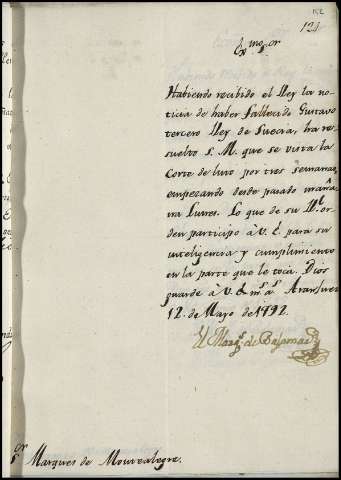 121
Exmo. Sor
Habiendo recibido el Rey la no-
ticia de haber fallecido Gustavo
tercero Rey de Suecia, ha re-
suelto S. M. que se vista la
Corte de luto por tres semanas,
empezando desde pasado maña-
na lunes. Lo que de su Rl. or-
den participo à V. E. para su
inteligencia y cumplimiento
en la parte que le toca. Dios
guarde à V. E. ms. as. Aranjuez
12. de Mayo de 1792.
El Marqs. de Bajamar
Sor Marques de Montealegre.